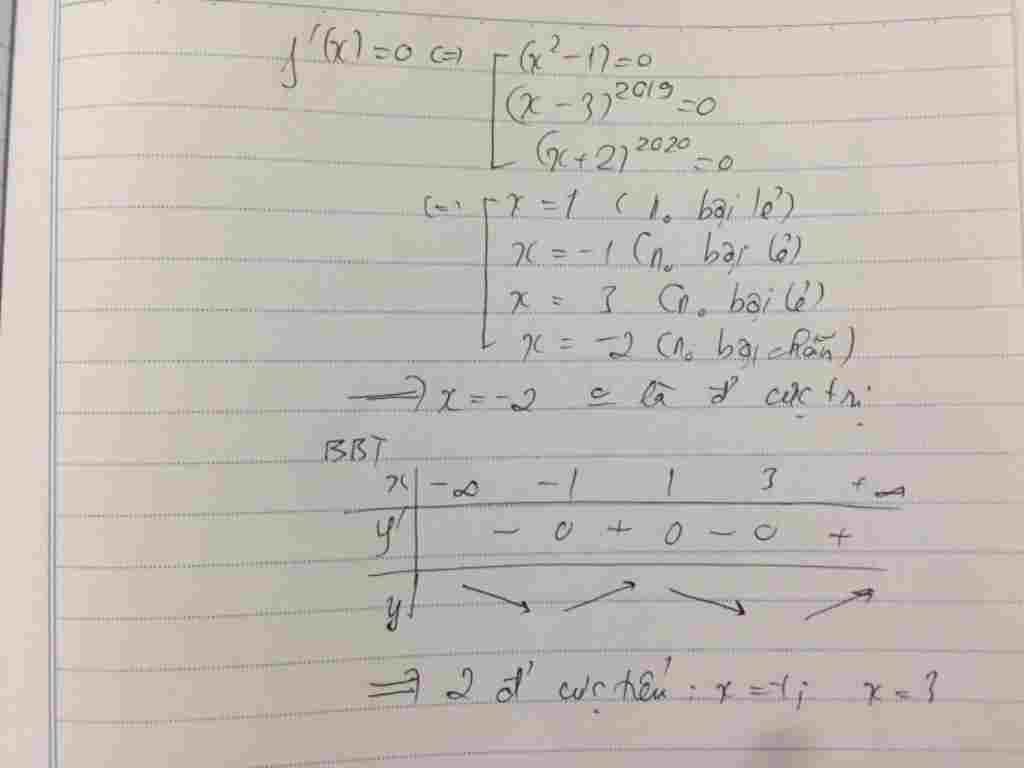 f'(x) = 0 <=> [ (x² - 1) = 0
(x - 3)²⁰¹⁹ = 0
(x + 2)²⁰²⁰ = 0
<=> [ x = 1 (n₀ bội lẻ)
x = -1 (n₀ bội lẻ)
x = 3 (n₀ bội lẻ)
x = -2 (n₀ bội chẵn)
=> x = -2 là đ' cực trị
BBT
x | -∞ -1 1 3 +∞
y' | - 0 + 0 - 0 +
y | ↘ ↗ ↘ ↗
=> 2 đ' cực tiểu : x = -1; x = 3